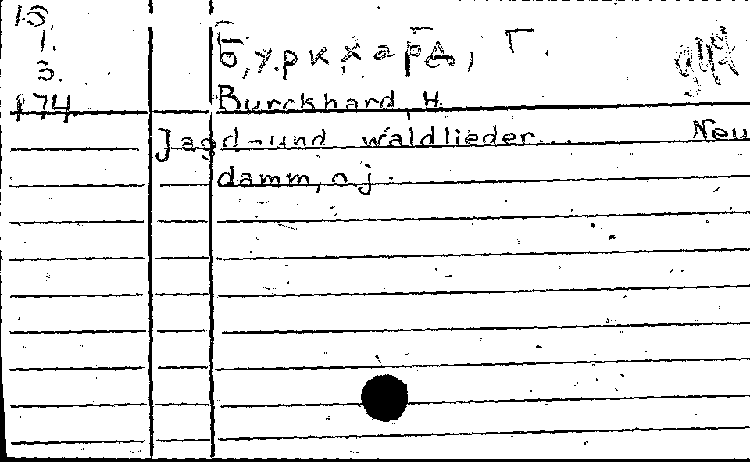 15.
1.
3.
174
Б, у р к х а р д, Г.
Burckhard, H.
Jagd-und waldlieder... Neu
damm, o. j.